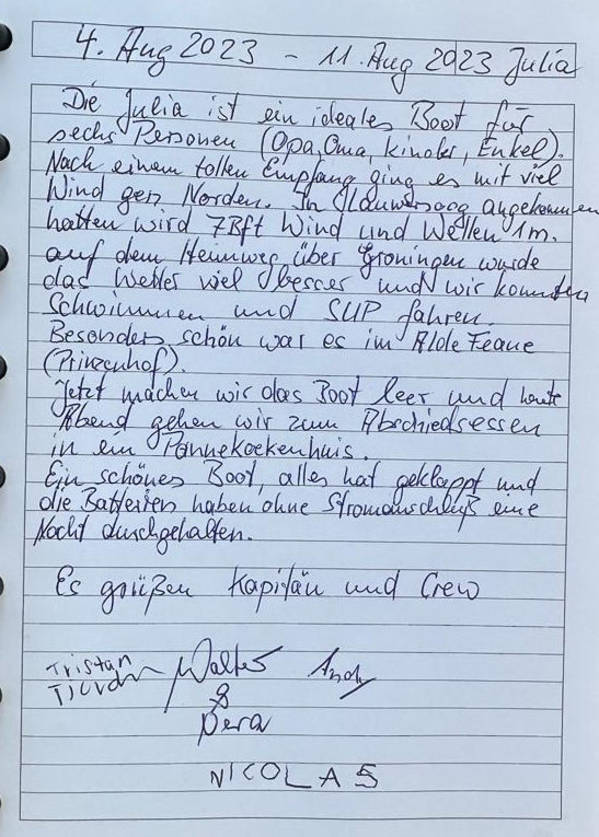 4. Aug 2023 - 11. Aug 2023 Julia
Die Julia ist ein ideales Boot für
sechs Personen (Opa, Oma, Kinder, Enkel).
Nach einem tollen Empfang ging es mit viel
Wind gen Norden. In Lauwersoog angekommen
hatten wird 7Bft Wind und Wellen 1m.
auf dem Heimweg über Groningen wurde
das Wetter viel besser und wir konnten
Schwimmen und SUP fahren.
Besonders schön war es im Alde Feane
(Prinzenhof).
Jetzt machen wir das Boot leer und heute
Abend gehen wir zum Abschiedsessen
in ein Pannekoekenhuis.
Ein schönes Boot, alles hat geklappt und
die Batterien haben ohne Stromanschluß eine
Nacht durchgehalten.
Es grüßen Kapitän und Crew
Tristan Walter Andy
&
Vera
NICOLAS